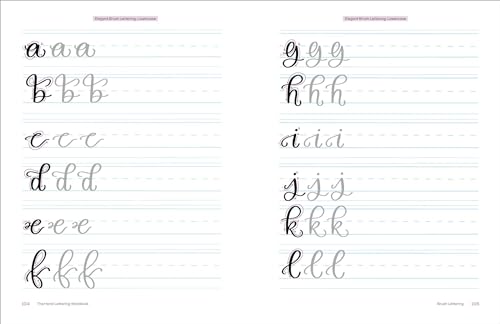 Elegant Brush Lettering: Lowercase
a a a
b b b
c c c
d d d
e e e
f f f
The Hand Lettering Workbook
Elegant Brush Lettering: Lowercase
g g g
h h h
i i i
j j j
k k k
l l l
Brush Lettering